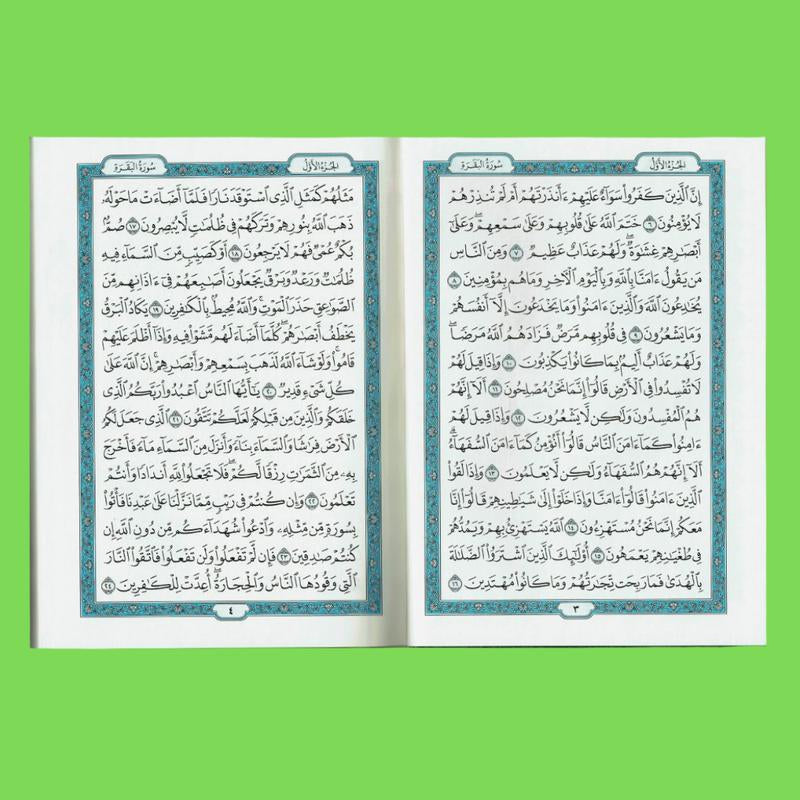 سُورَةُ البَقَرَةِ
الجُزْءُ الأَوَّلُ
إِنَّ ٱلَّذِينَ كَفَرُوا۟ سَوَآءٌ عَلَيْهِمْ ءَأَنذَرْتَهُمْ أَمْ لَمْ تُنذِرْهُمْ
لَا يُؤْمِنُونَ ٦ خَتَمَ ٱللَّهُ عَلَىٰ قُلُوبِهِمْ وَعَلَىٰ سَمْعِهِمْ ۖ وَعَلَىٰٓ
أَبْصَٰرِهِمْ غِشَٰوَةٌ ۖ وَلَهُمْ عَذَابٌ عَظِيمٌ ٧ وَمِنَ ٱلنَّاسِ
مَن يَقُولُ ءَامَنَّا بِٱللَّهِ وَبِٱلْيَوْمِ ٱلْـَٔاخِرِ وَمَا هُم بِمُؤْمِنِينَ ٨
يُخَٰدِعُونَ ٱللَّهَ وَٱلَّذِينَ ءَامَنُوا۟ وَمَا يَخْدَعُونَ إِلَّآ أَنفُسَهُمْ
وَمَا يَشْعُرُونَ ٩ فِى قُلُوبِهِم مَّرَضٌ فَزَادَهُمُ ٱللَّهُ مَرَضًا ۖ
وَلَهُمْ عَذَابٌ أَلِيمٌۢ بِمَا كَانُوا۟ يَكْذِبُونَ ١٠ وَإِذَا قِيلَ لَهُمْ
لَا تُفْسِدُوا۟ فِى ٱلْأَرْضِ قَالُوٓا۟ إِنَّمَا نَحْنُ مُصْلِحُونَ ١١ أَلَآ إِنَّهُمْ
هُمُ ٱلْمُفْسِدُونَ وَلَٰكِن لَّا يَشْعُرُونَ ١٢ وَإِذَا قِيلَ لَهُمْ
ءَامِنُوا۟ كَمَآ ءَامَنَ ٱلنَّاسُ قَالُوٓا۟ أَنُؤْمِنُ كَمَآ ءَامَنَ ٱلسُّفَهَآءُ ۗ
أَلَآ إِنَّهُمْ هُمُ ٱلسُّفَهَآءُ وَلَٰكِن لَّا يَعْلَمُونَ ١٣ وَإِذَا لَقُوا۟
ٱلَّذِينَ ءَامَنُوا۟ قَالُوٓا۟ ءَامَنَّا وَإِذَا خَلَوْا۟ إِلَىٰ شَيَٰطِينِهِمْ قَالُوٓا۟ إِنَّا
مَعَكُمْ إِنَّمَا نَحْنُ مُسْتَهْزِءُونَ ١٤ ٱللَّهُ يَسْتَهْزِئُ بِهِمْ وَيَمُدُّهُمْ
فِى طُغْيَٰنِهِمْ يَعْمَهُونَ ١٥ أُو۟لَٰٓئِكَ ٱلَّذِينَ ٱشْتَرَوُا۟ ٱلضَّلَٰلَةَ
بِٱلْهُدَىٰ فَمَا رَبِحَت تِّجَٰرَتُهُمْ وَمَا كَانُوا۟ مُهْتَدِينَ ١٦
٣
سُورَةُ البَقَرَةِ
الجُزْءُ الأَوَّلُ
مَثَلُهُمْ كَمَثَلِ ٱلَّذِى ٱسْتَوْقَدَ نَارًا فَلَمَّآ أَضَآءَتْ مَا حَوْلَهُۥ
ذَهَبَ ٱللَّهُ بِنُورِهِمْ وَتَرَكَهُمْ فِى ظُلُمَٰتٍ لَّا يُبْصِرُونَ ١٧ صُمٌّۢ
بُكْمٌ عُمْىٌ فَهُمْ لَا يَرْجِعُونَ ١٨ أَوْ كَصَيِّبٍ مِّنَ ٱلسَّمَآءِ فِيهِ
ظُلُمَٰتٌ وَرَعْدٌ وَبَرْقٌ يَجْعَلُونَ أَصَٰبِعَهُمْ فِىٓ ءَاذَانِهِم مِّنَ
ٱلصَّوَٰعِقِ حَذَرَ ٱلْمَوْتِ ۚ وَٱللَّهُ مُحِيطٌۢ بِٱلْكَٰفِرِينَ ١٩ يَكَادُ ٱلْبَرْقُ
يَخْطَفُ أَبْصَٰرَهُمْ ۖ كُلَّمَآ أَضَآءَ لَهُم مَّشَوْا۟ فِيهِ وَإِذَآ أَظْلَمَ عَلَيْهِمْ
قَامُوا۟ ۚ وَلَوْ شَآءَ ٱللَّهُ لَذَهَبَ بِسَمْعِهِمْ وَأَبْصَٰرِهِمْ ۚ إِنَّ ٱللَّهَ عَلَىٰ
كُلِّ شَىْءٍ قَدِيرٌ ٢٠ يَٰٓأَيُّهَا ٱلنَّاسُ ٱعْبُدُوا۟ رَبَّكُمُ ٱلَّذِى
خَلَقَكُمْ وَٱلَّذِينَ مِن قَبْلِكُمْ لَعَلَّكُمْ تَتَّقُونَ ٢١ ٱلَّذِى جَعَلَ لَكُمُ
ٱلْأَرْضَ فِرَٰشًا وَٱلسَّمَآءَ بِنَآءً وَأَنزَلَ مِنَ ٱلسَّمَآءِ مَآءً فَأَخْرَجَ
بِهِۦ مِنَ ٱلثَّمَرَٰتِ رِزْقًا لَّكُمْ ۖ فَلَا تَجْعَلُوا۟ لِلَّهِ أَندَادًا وَأَنتُمْ
تَعْلَمُونَ ٢٢ وَإِن كُنتُمْ فِى رَيْبٍ مِّمَّا نَزَّلْنَا عَلَىٰ عَبْدِنَا فَأْتُوا۟
بِسُورَةٍ مِّن مِّثْلِهِۦ وَٱدْعُوا۟ شُهَدَآءَكُم مِّن دُونِ ٱللَّهِ إِن
كُنتُمْ صَٰدِقِينَ ٢٣ فَإِن لَّمْ تَفْعَلُوا۟ وَلَن تَفْعَلُوا۟ فَٱتَّقُوا۟ ٱلنَّارَ
ٱلَّتِى وَقُودُهَا ٱلنَّاسُ وَٱلْحِجَارَةُ ۖ أُعِدَّتْ لِلْكَٰفِرِينَ ٢٤
٤